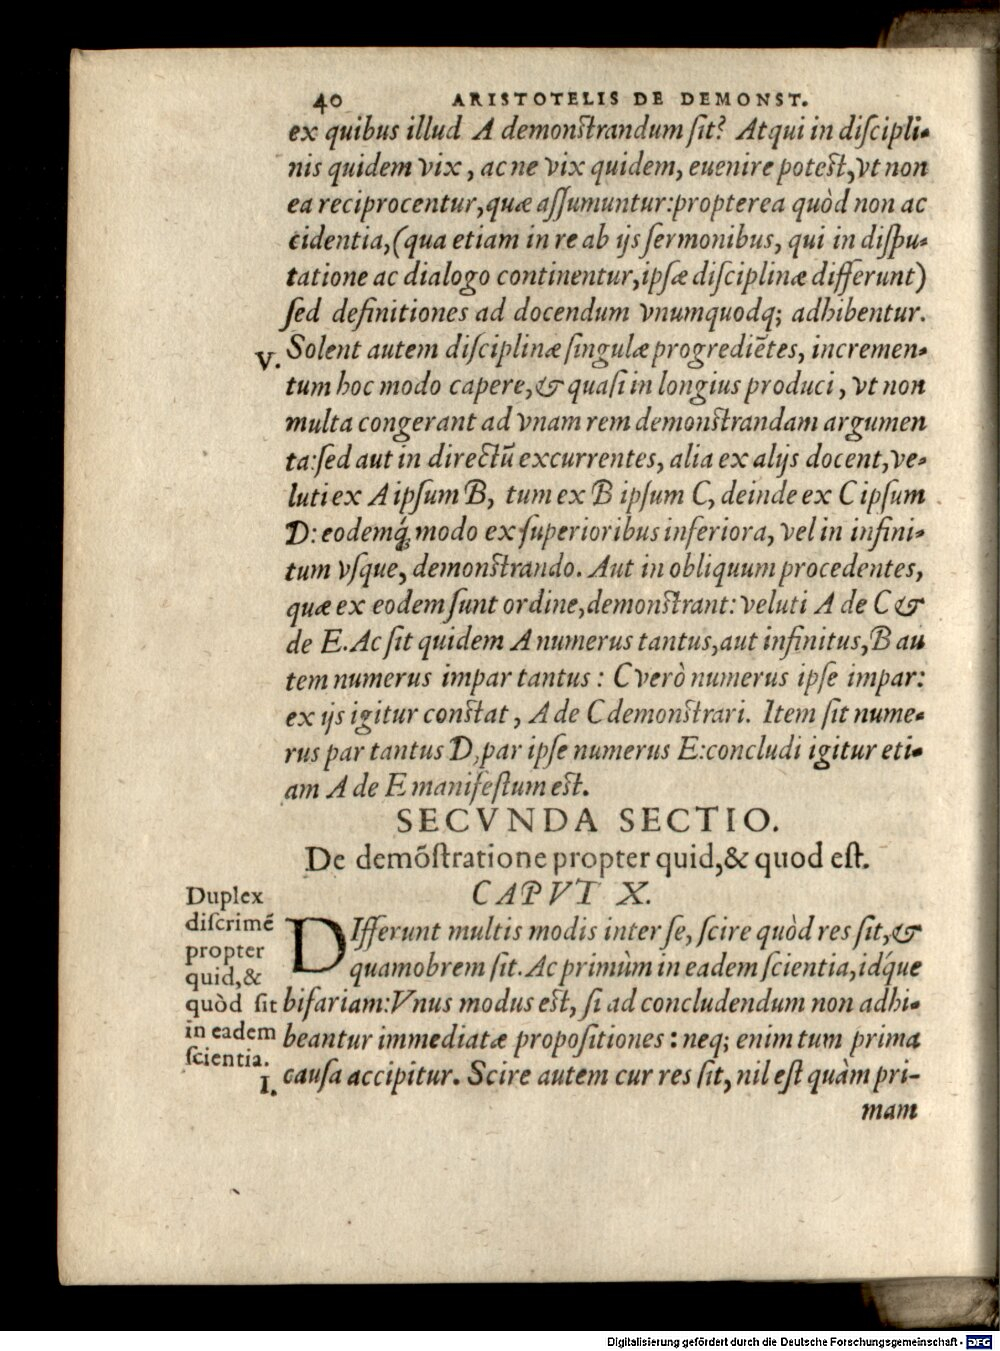 40 ARISTOTELIS DE DEMONST.
ex quibus illud A demonſtrandum ſit? Atqui in diſcipli-
nis quidem vix, ac ne vix quidem, euenire poteſt, vt non
ea reciprocentur, quæ aſſumuntur: propterea quòd non ac
cidentia, (qua etiam in re ab ijs ſermonibus, qui in diſpu-
tatione ac dialogo continentur, ipſæ diſciplinæ differunt)
ſed definitiones ad docendum vnumquodq; adhibentur.
V. Solent autem diſciplinæ ſingulæ progrediẽtes, incremen-
tum hoc modo capere, & quaſi in longius produci, vt non
multa congerant ad vnam rem demonſtrandam argumen
ta: ſed aut in directũ excurrentes, alia ex alijs docent, ve-
luti ex A ipſum B, tum ex B ipſum C, deinde ex C ipſum
D: eodemq́; modo ex ſuperioribus inferiora, vel in infini-
tum vſque, demonſtrando. Aut in obliquum procedentes,
quæ ex eodem ſunt ordine, demonſtrant: veluti A de C &
de E. Ac ſit quidem A numerus tantus, aut infinitus, B au
tem numerus impar tantus: C verò numerus ipſe impar:
ex ijs igitur conſtat, A de C demonſtrari. Item ſit nume-
rus par tantus D, par ipſe numerus E: concludi igitur eti-
am A de E manifeſtum eſt.
SECVNDA SECTIO.
De demõſtratione propter quid, & quod eſt.
CAPVT X.
Duplex
diſcrimẽ
propter
quid, &
quòd ſit
in eadem
ſcientia.
I.
DIfferunt multis modis inter ſe, ſcire quòd res ſit, &
quamobrem ſit. Ac primùm in eadem ſcientia, idq́ue
bifariam: Vnus modus eſt, ſi ad concludendum non adhi-
beantur immediatæ propoſitiones: neq; enim tum prima
cauſa accipitur. Scire autem cur res ſit, nil eſt quàm pri-
mam
Digitalisierung gefördert durch die Deutsche Forschungsgemeinschaft - DFG